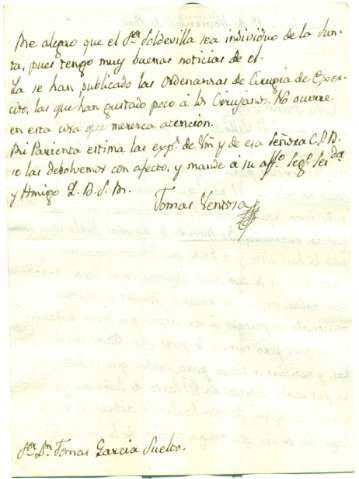 Me alegro que el Sor. Soldevilla sea individuo de la Jun-
ta, pues tengo muy buenas noticias de el.
Ya se han publicado las Ordenanzas de Cirugia de Exer-
cito, las que han gustado poco á los Cirujanos. No ocurre
en esta cosa que merezca atención.
Mi Parienta estima las exps. de Vm y de esa Señora C.P.B.
se las debolvemos con afecto, y mande á su affo. Segº Serdor
y Amigo Q. B. S. M.
Tomas
Sor. Dn. Tomas Garcia Suelto.